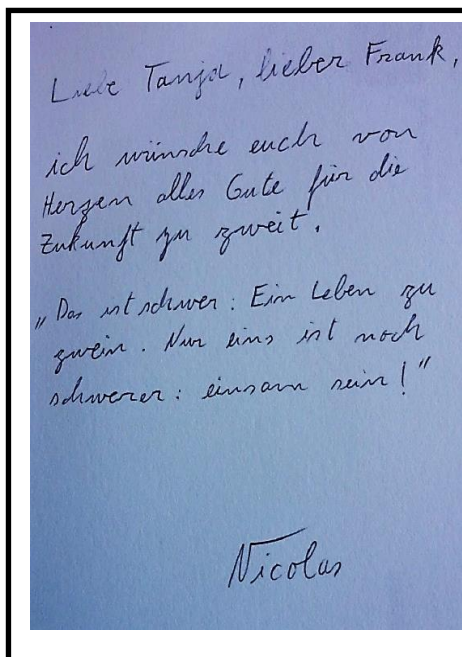 Liebe Tanja, lieber Frank,
ich wünsche euch von
Herzen alles Gute für die
Zukunft zu zweit.
„Das ist schwer: Ein Leben zu
zwein. Nur eins ist noch
schwerer: einsam sein!“
Nicolas